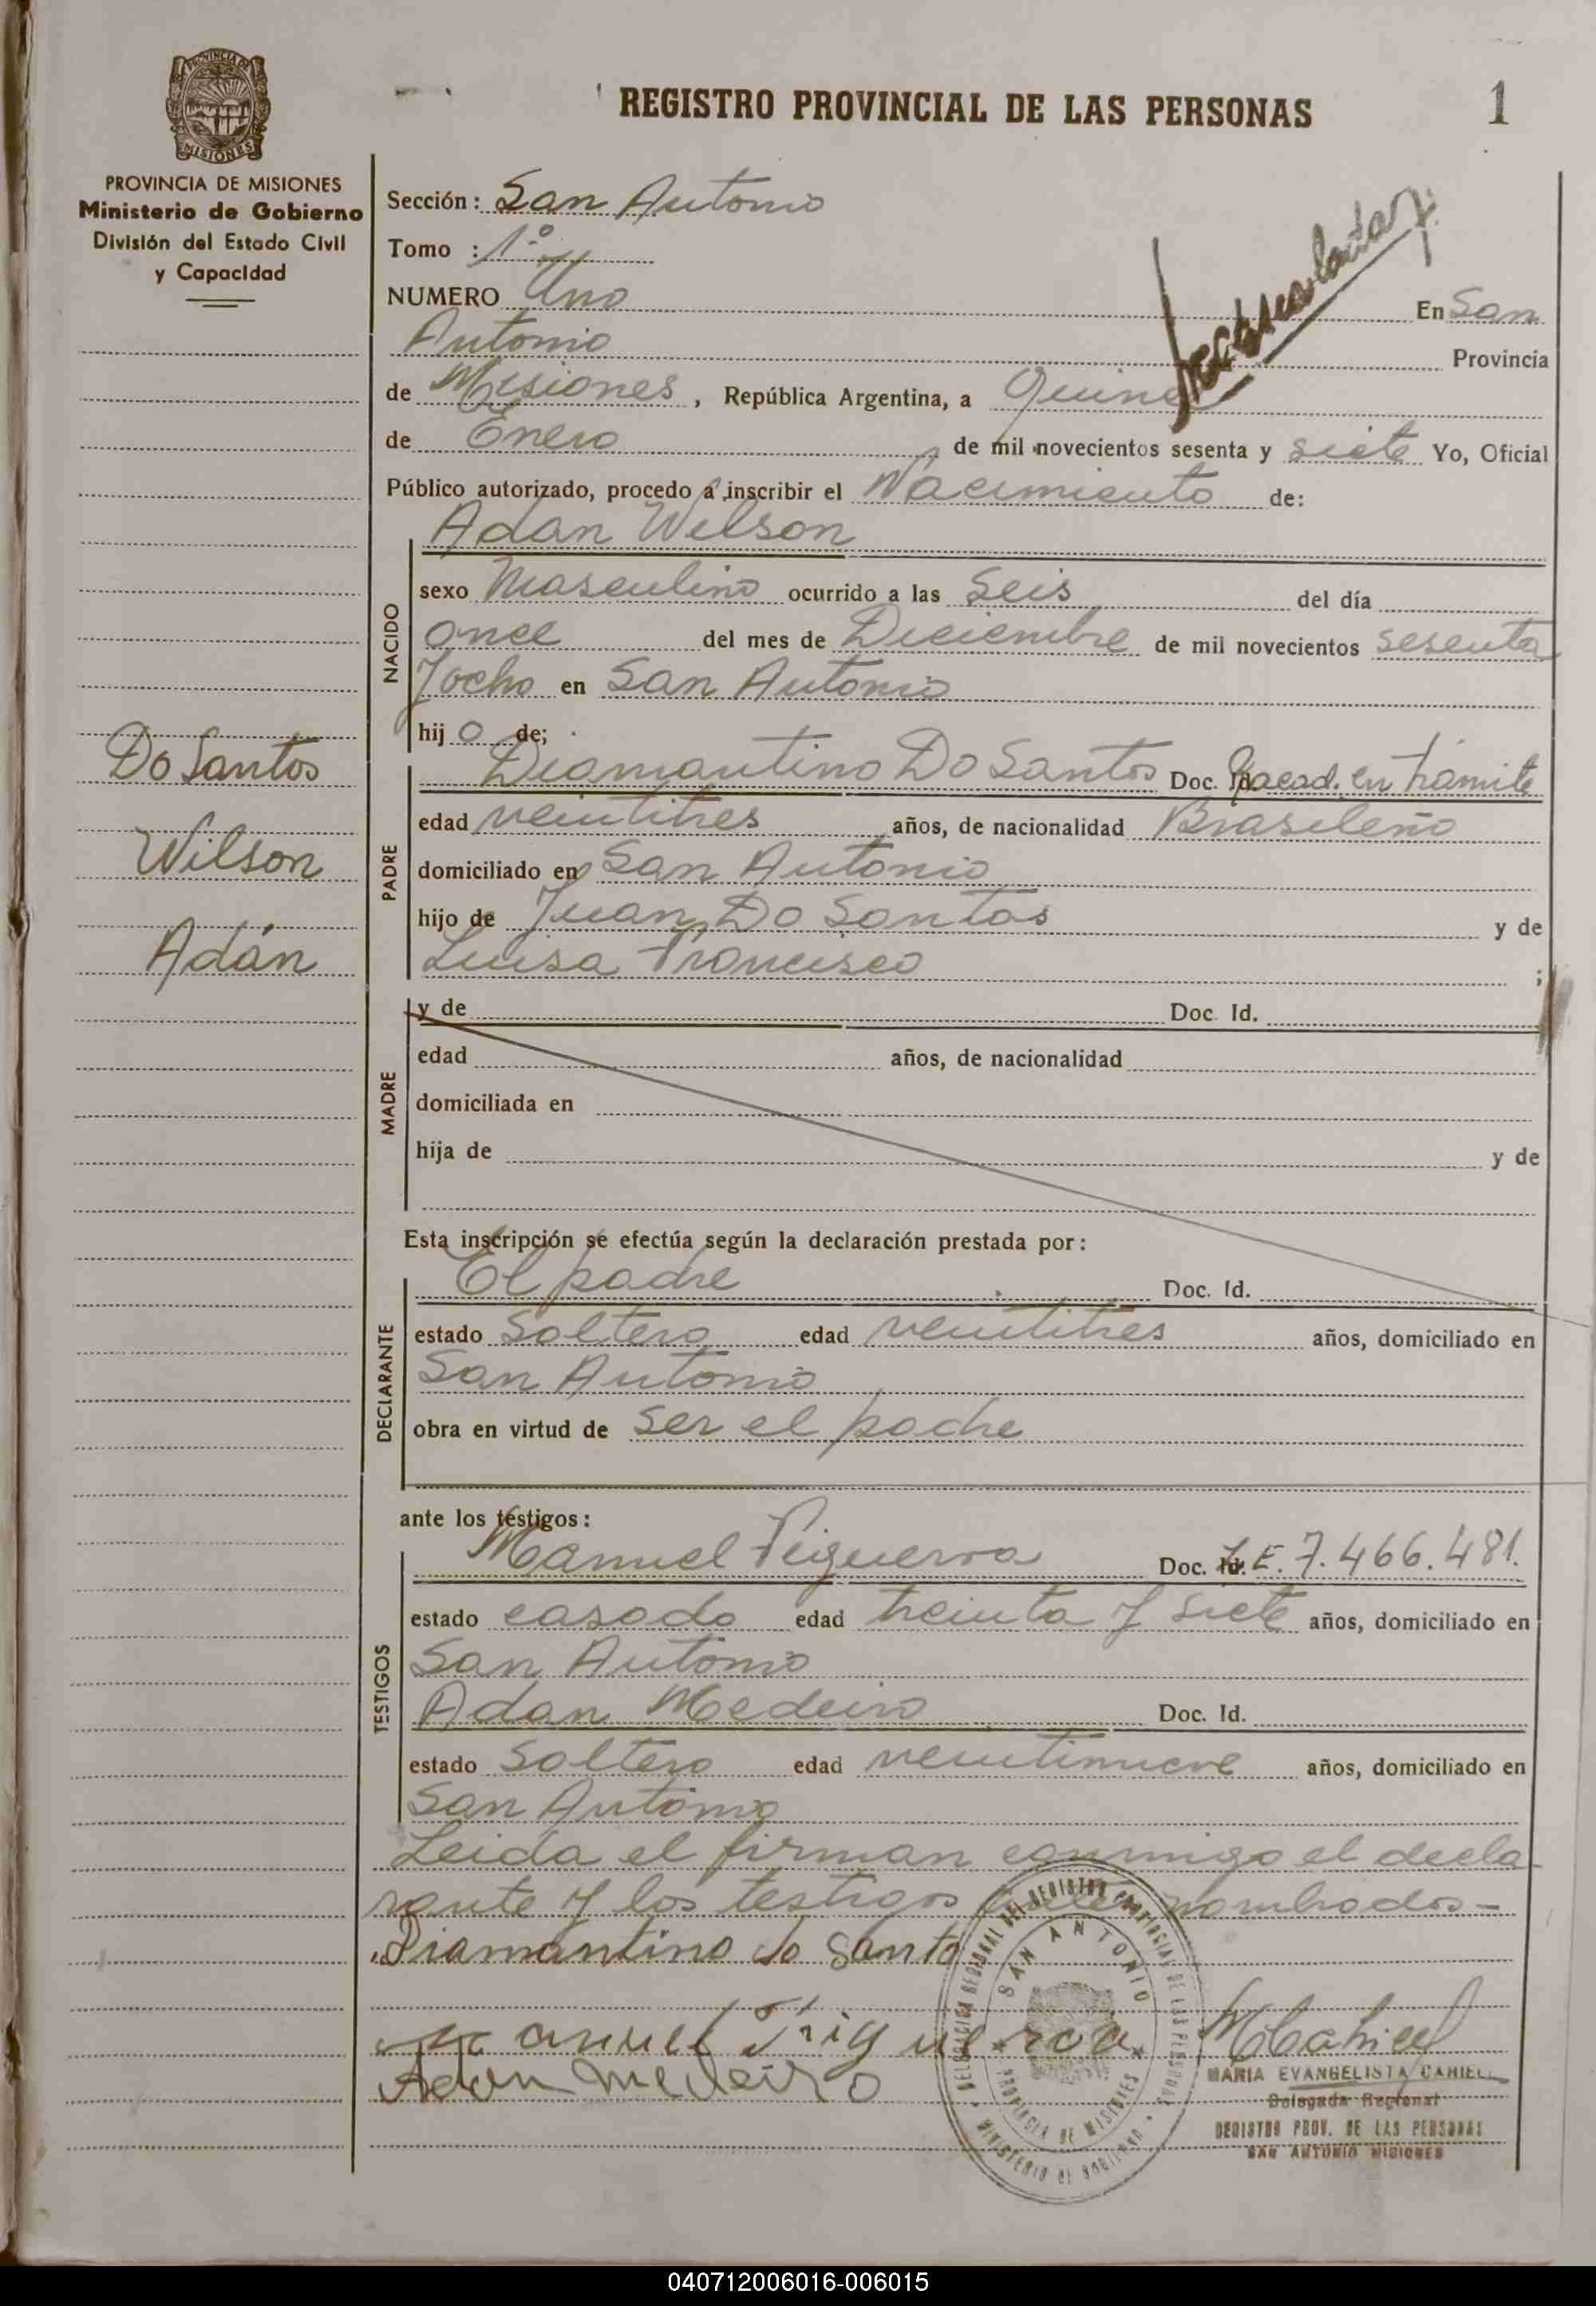 PROVINCIA DE
MISIONES
PROVINCIA DE MISIONES
Ministerio de Gobierno
División del Estado Civil
y Capacidad
REGISTRO PROVINCIAL DE LAS PERSONAS
1
Sección: San Antonio
Tomo : 1º
NUMERO Uno En San
Antonio Provincia
de Misiones, República Argentina, a Quince
de Enero de mil novecientos sesenta y siete Yo, Oficial
Público autorizado, procedo a inscribir el Nacimiento de:
NACIDO
Adan Wilson
sexo Masculino ocurrido a las Seis del día
once del mes de Diciembre de mil novecientos sesenta
y ocho en San Antonio
hij o de;
Do Santos
Wilson
Adán
PADRE
Diamantino Do Santos Doc. Id. en trámite
edad veintitres años, de nacionalidad Brasileño
domiciliado en San Antonio
hijo de Juan Do Santos y de
Luisa Francisco ;
MADRE
y de Doc. Id.
edad años, de nacionalidad
domiciliada en
hija de y de
Esta inscripción se efectúa según la declaración prestada por:
DECLARANTE
El padre Doc. Id.
estado Soltero edad veintitres años, domiciliado en
San Antonio
obra en virtud de ser el padre
ante los testigos:
TESTIGOS
Manuel Figuerroa Doc. Id. L.E. 7.466.481.
estado casado edad treinta y siete años, domiciliado en
San Antonio
Adan Medeiro Doc. Id.
estado Soltero edad veintinueve años, domiciliado en
San Antonio
Leida el firman conmigo el decla-
rante y los testigos nombrados-
Diamantino do Santo
Manuel Friguerroa MCahiel
Adan Medeiro
DELEGACION REGIONAL DEL REGISTRO PROVINCIAL DE LAS PERSONAS
SAN ANTONIO
PROVINCIA DE MISIONES
MINISTERIO DE GOBIERNO
MARIA EVANGELISTA CAHIEL
Delegada Regional
REGISTRO PROV. DE LAS PERSONAS
SAN ANTONIO MISIONES
040712006016-006015